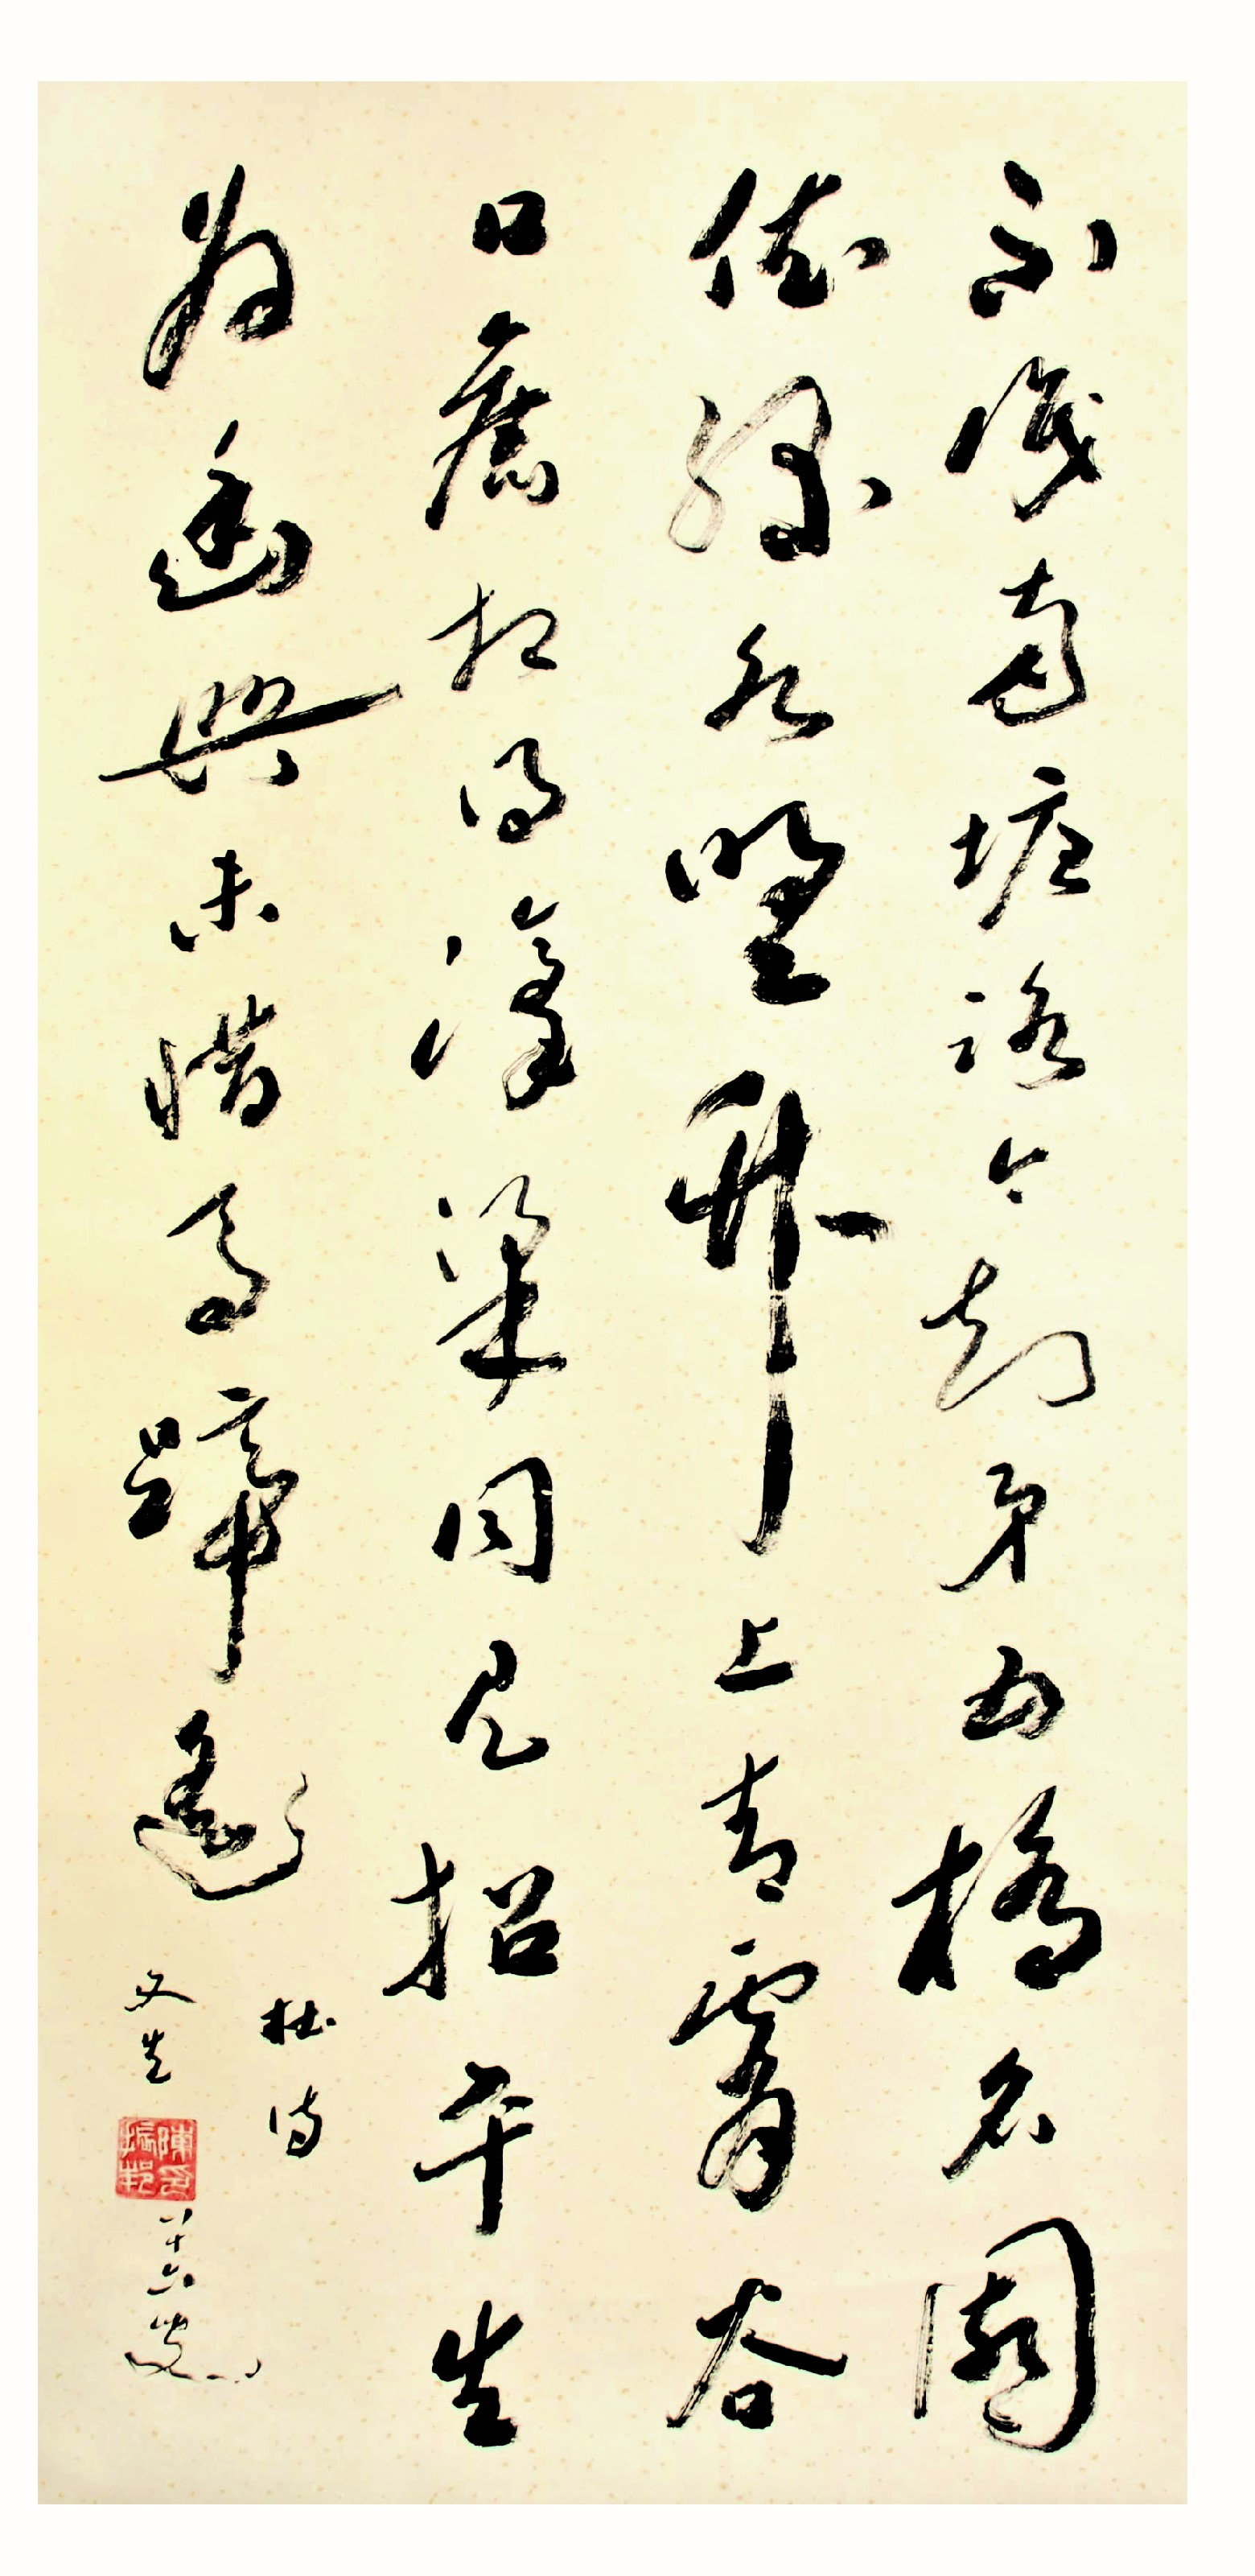 不識南塘路今知第五橋名園
依綠水野竹上青霄谷
口舊相得濠梁同見招平生
為幽興未惜馬蹄遙
杜詩
陳印振邦
八十六叟